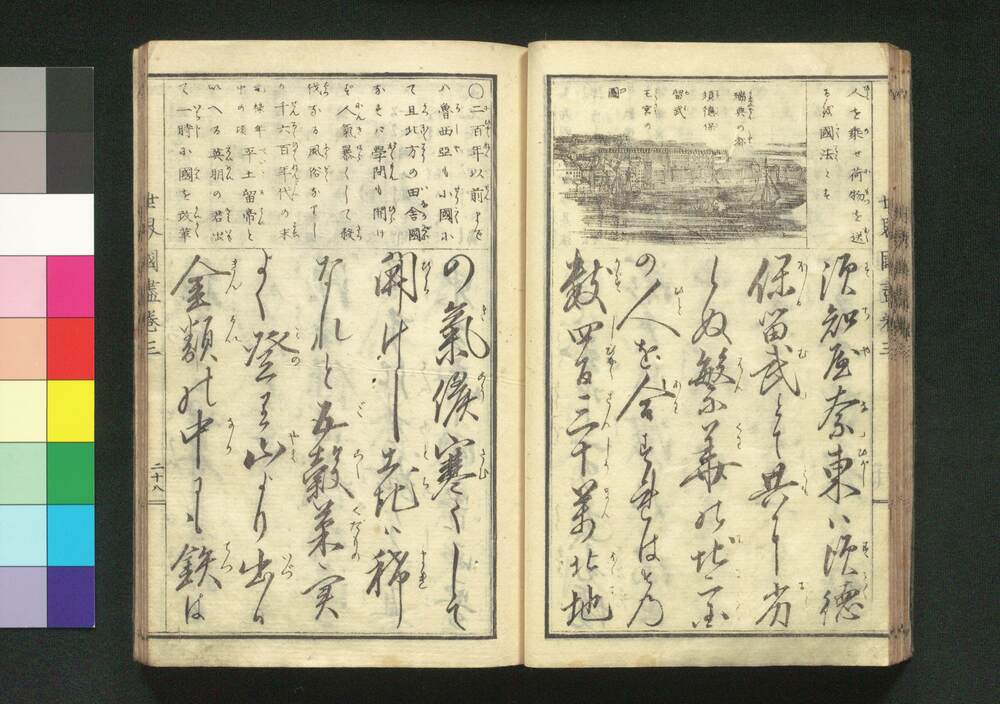 人を乗せ荷物を送
るを國法とす
瑞典の都
須徳保
留武
王宮の
圖
須知屋奈東は須徳
保留武とて共に劣
らぬ繁華の地
の人を合すればその
數四百三十萬北地
世界國盡巻三
○二百年以前まで
は魯西亜も小國に
て且北方の田舎國
學問も開け
ず人氣暴くして殺
伐なる風俗なりし
が千六百年代の末
元禄年中の頃平土留帝と
いへる英明の君出
て一時に國を改革
の氣候寒くして
開けし土地は稀
なれど五穀菓実
よく登る山より出る
金類の中にも鉄は
世界國盡巻三
二十八